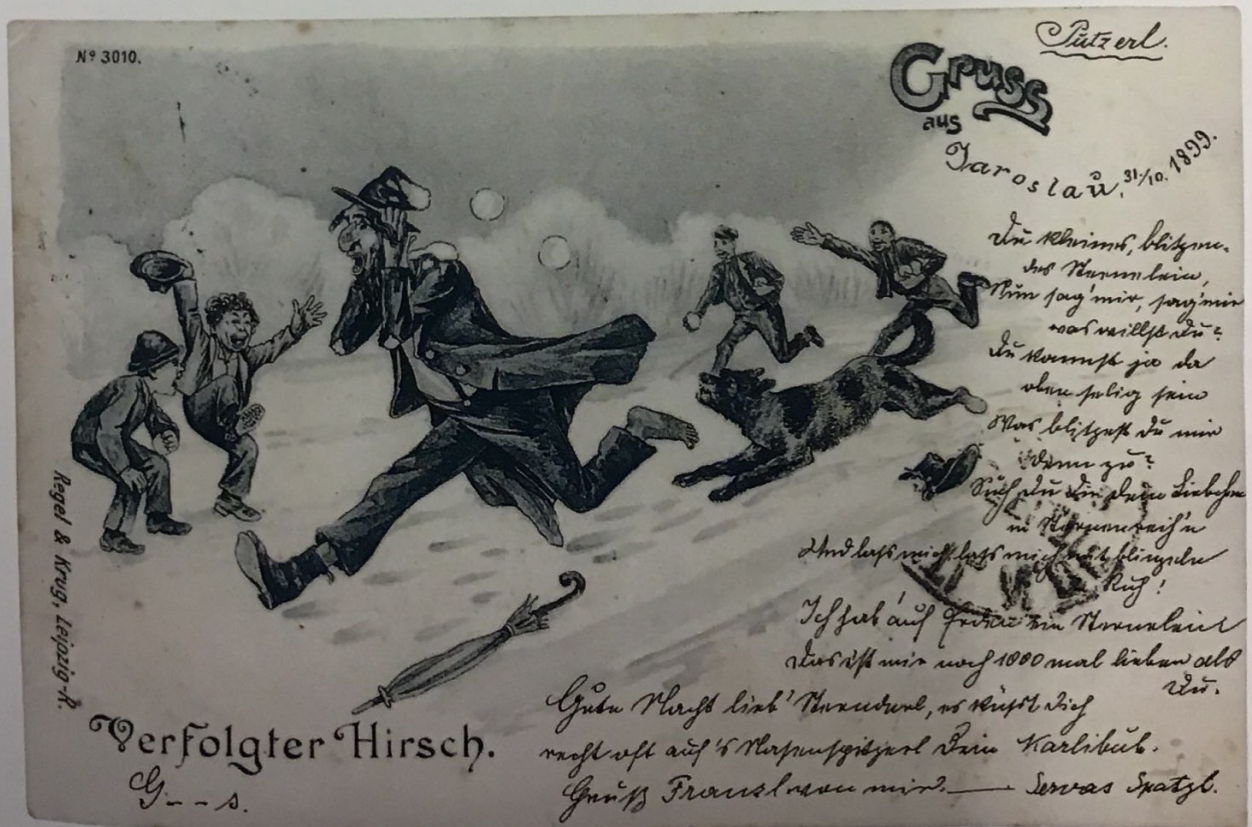 Nº 3010.
Putzerl.
Gruss
aus
Jaroslau, 31./10. 1899.
Du kleines, blitzen-
des Sternelein,
Nun sag' mir, sag' mir
was willst du?
Du kannst ja da
oben selig sein
Was blitzest du mir
denn zu?
Such du dir dein Liebchen
in
Und lass mich lass mich mit blinzeln
Ruh!
Ich hab' auf Erden ein Sternelein
Das ist mir noch 1000 mal lieber als
du.
Gute Nacht lieb' Sternderl, es küsst dich
recht oft auf's Nasenspitzerl Dein Karlibub.
Gruß Franzl von mir. — Servas Spatzl.
Verfolgter Hirsch.
G - - s.
Regel & Krug, Leipzig-R.